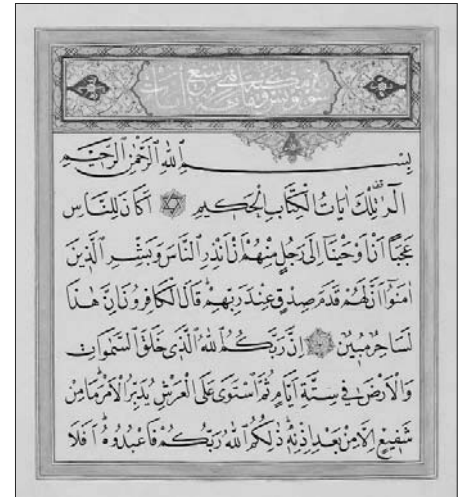 سورة يونس مكية وهي مائة وتسع آيات
بِسْمِ اللهِ الرَّحْمٰنِ الرَّحِيمِ
الٓرٰ تِلْكَ اٰيَاتُ الْكِتَابِ الْحَكِيمِ اَكَانَ لِلنَّاسِ
عَجَبًا اَنْ اَوْحَيْنَٓا اِلٰى رَجُلٍ مِنْهُمْ اَنْ اَنْذِرِ النَّاسَ وَبَشِّرِ الَّذِينَ
اٰمَنُٓوا اَنَّ لَهُمْ قَدَمَ صِدْقٍ عِنْدَ رَبِّهِمْ قَالَ الْكَافِرُونَ اِنَّ هٰذَا
لَسَاحِرٌ مُبِينٌ اِنَّ رَبَّكُمُ اللهُ الَّذِى خَلَقَ السَّمٰوَاتِ
وَالْاَرْضَ فِى سِتَّةِ اَيَّامٍ ثُمَّ اسْتَوٰى عَلَى الْعَرْشِ يُدَبِّرُ الْاَمْرَ مَا مِنْ
شَفِيعٍ اِلَّا مِنْ بَعْدِ اِذْنِهِ ذٰلِكُمُ اللهُ رَبُّكُمْ فَاعْبُدُوهُ اَفَلَا